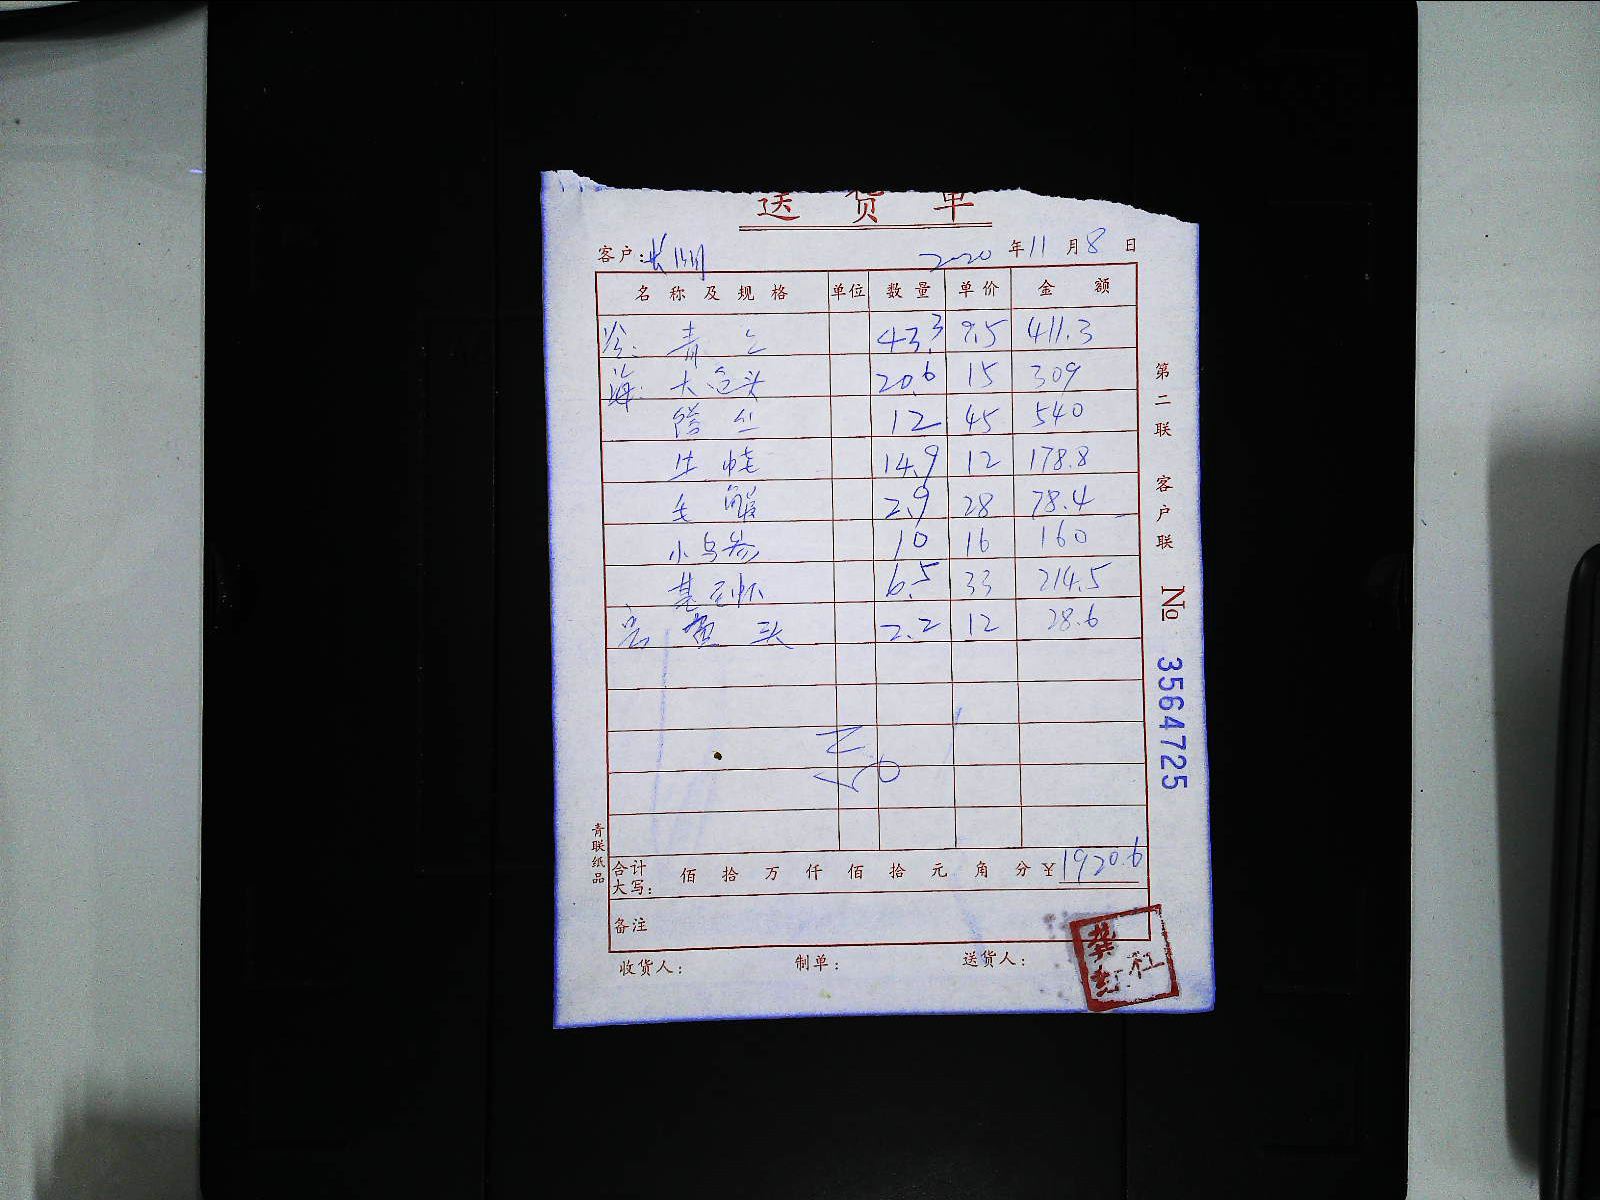 送 货 单
客户: 2020 年 11 月 8 日
名 称 及 规 格 单位 数 量 单 价 金 额
青 43.3 9.5 411.3
海: 大 头 20.6 15 309
12 45 540
生 14.9 12 178.8
毛 2.9 28 78.4
小乌参 10 16 160
基 6.5 33 214.5
头 2.2 12 28.6
合计大写: 佰 拾 万 仟 佰 拾 元 角 分 ¥ 1920.6
备注
收货人: 制单: 送货人:
第二联 客户联 № 3564725
青联纸品
龚红社